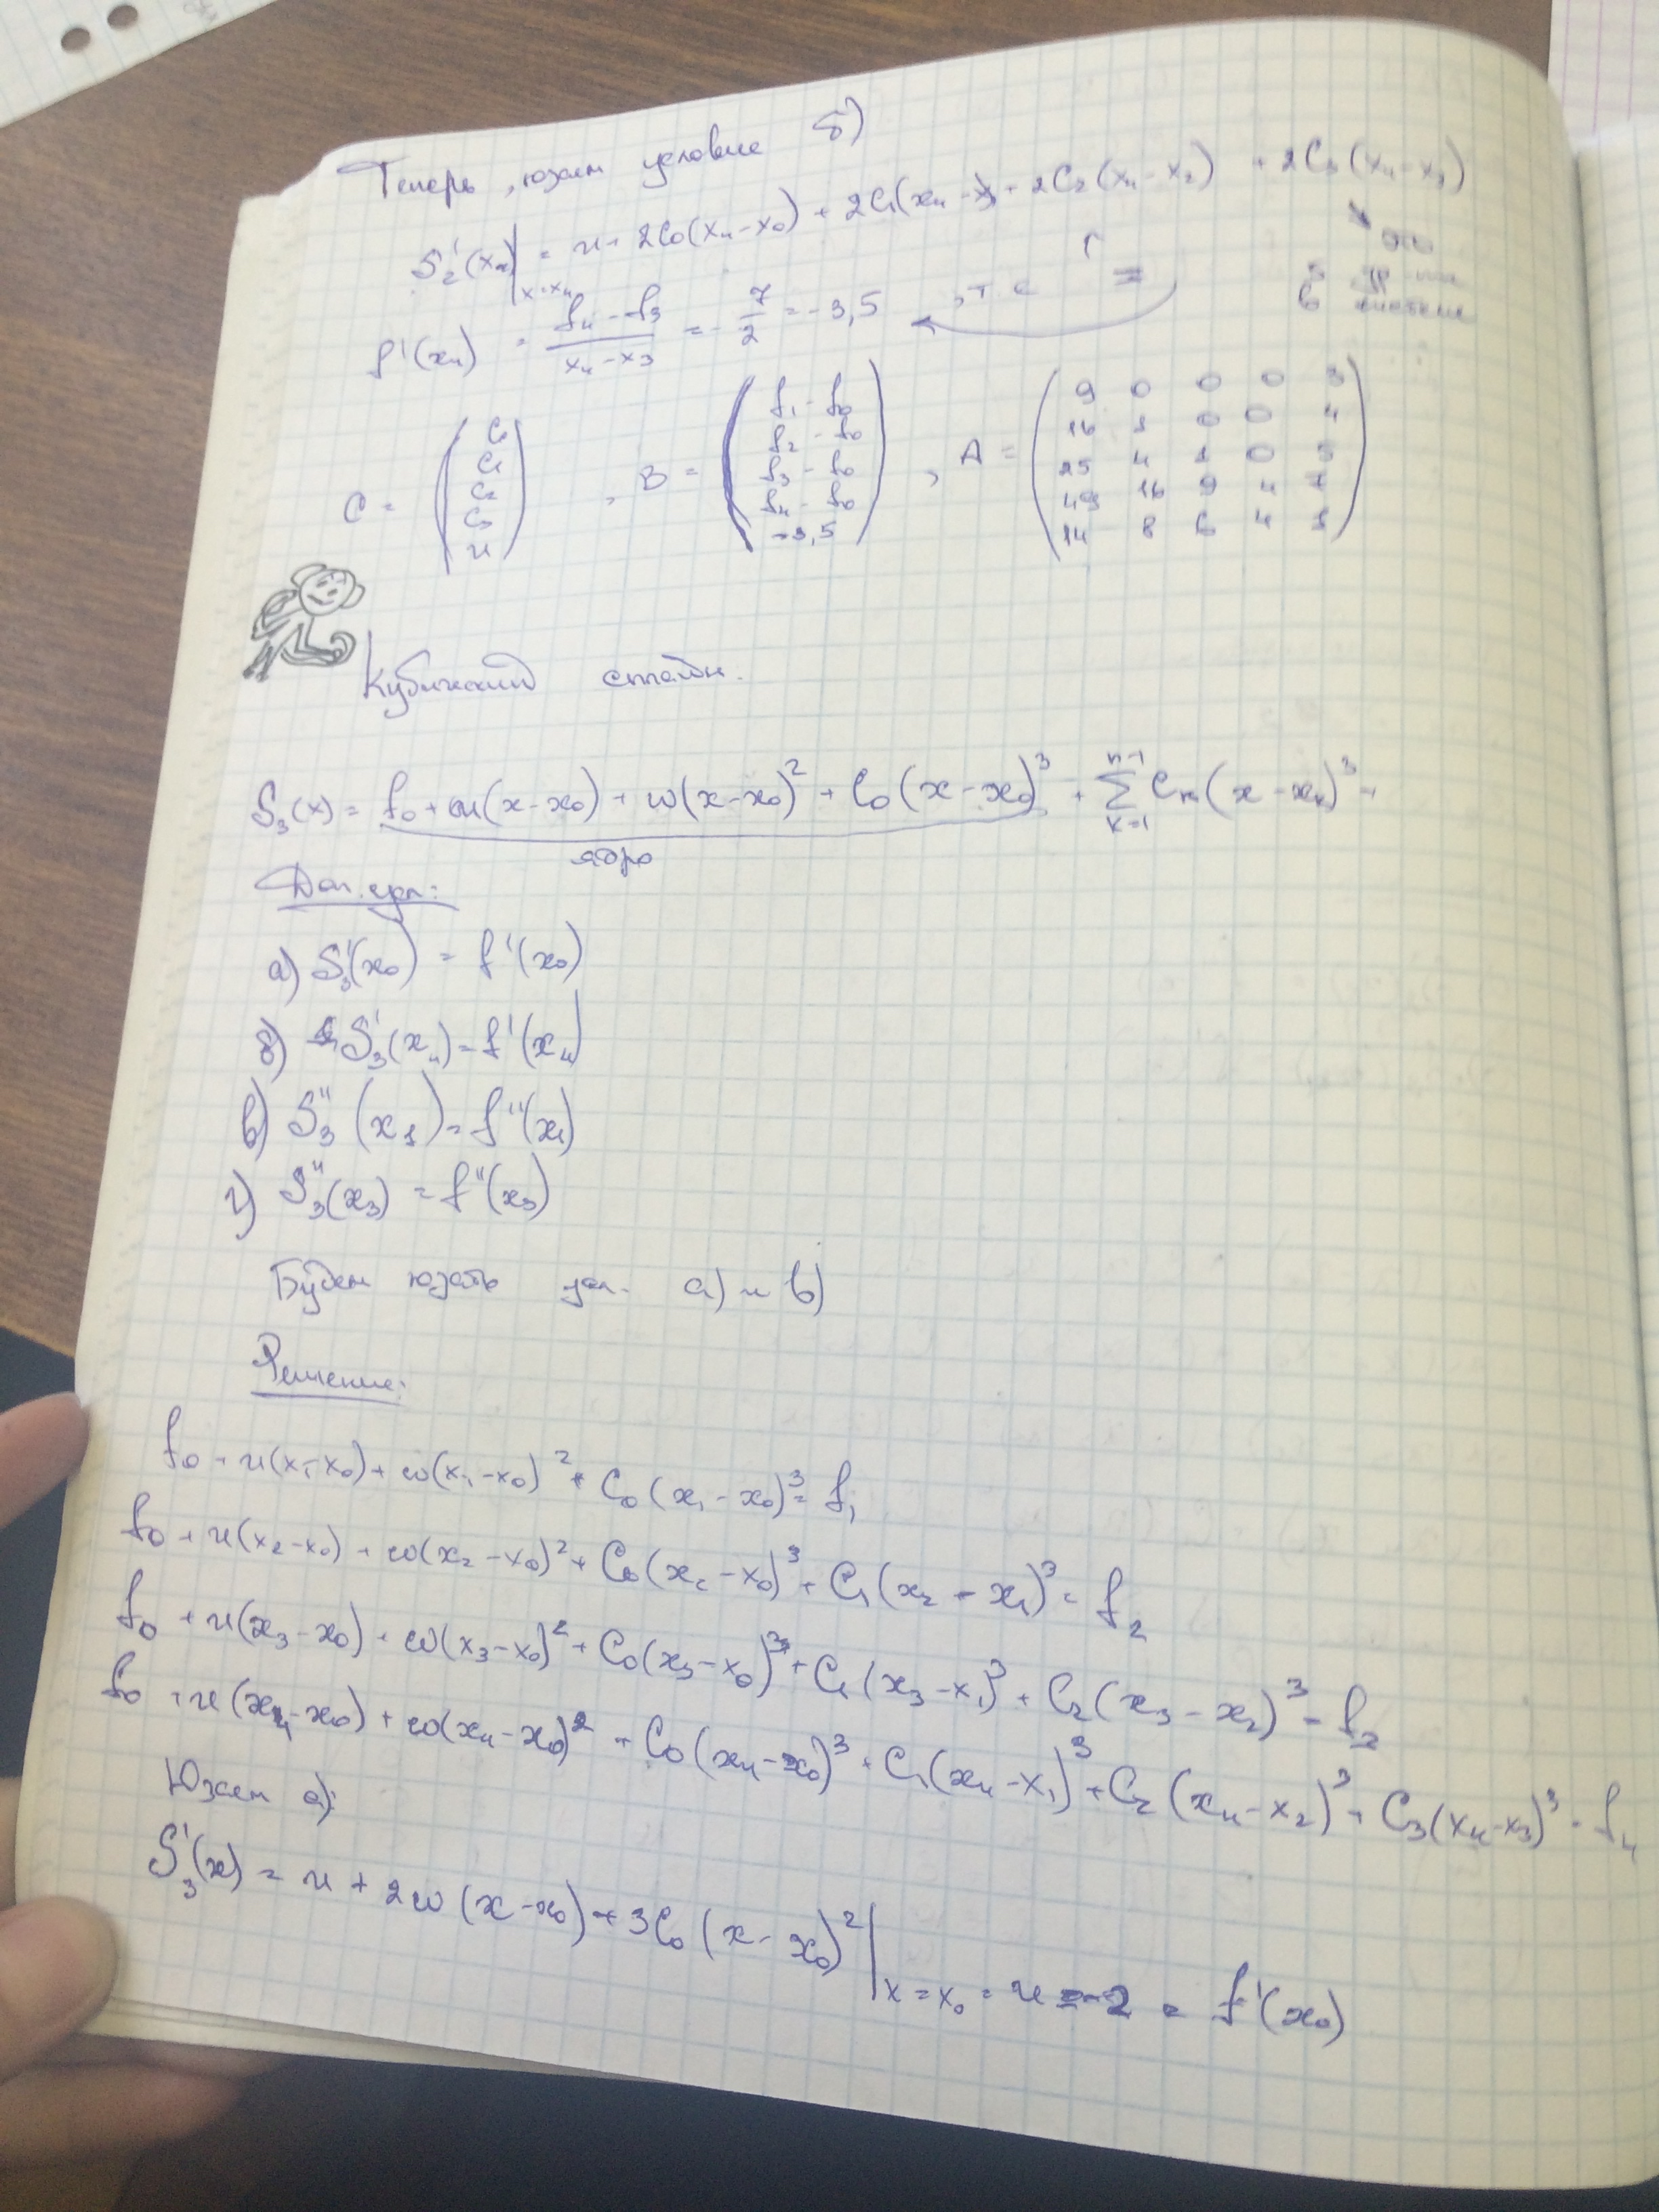 Теперь, юзаем условие б)
S₂'(x₄)|ₓ₌ₓ₄ = u + 2C₀(x₄ - x₀) + 2C₁(x₄ - x₁) + 2C₂(x₄ - x₂) + 2C₃(x₄ - x₃)
f'(x₄) = (f₄ - f₃)/(x₄ - x₃) = -7/2 = -3,5 , т.е
C = (C₀ C₁ C₂ C₃ u) , B = (f₁ - f₀ f₂ - f₀ f₃ - f₀ f₄ - f₀ -3,5) , A =
9 0 0 0 3
16 1 0 0 4
25 4 1 0 5
49 16 9 4 7
14 8 6 4 1
Кубический сплайн.
S₃(x) = f₀ + u(x - x₀) + w(x - x₀)² + C₀(x - x₀)³ + Σₖ₌₁ⁿ⁻¹ Cₖ(x - xₖ)³₊
ядро
Доп. усл:
а) S₃'(x₀) = f'(x₀)
б) S₃'(x₄) = f'(x₄)
в) S₃''(x₁) = f''(x₁)
г) S₃''(x₃) = f''(x₃)
Будем юзать усл. а) и в)
Решение:
f₀ + u(x₁ - x₀) + w(x₁ - x₀)² + C₀(x₁ - x₀)³ = f₁
f₀ + u(x₂ - x₀) + w(x₂ - x₀)² + C₀(x₂ - x₀)³ + C₁(x₂ - x₁)³ = f₂
f₀ + u(x₃ - x₀) + w(x₃ - x₀)² + C₀(x₃ - x₀)³ + C₁(x₃ - x₁)³ + C₂(x₃ - x₂)³ = f₃
f₀ + u(x₄ - x₀) + w(x₄ - x₀)² + C₀(x₄ - x₀)³ + C₁(x₄ - x₁)³ + C₂(x₄ - x₂)³ + C₃(x₄ - x₃)³ = f₄
Юзаем а):
S₃'(x) = u + 2w(x - x₀) + 3C₀(x - x₀)²|ₓ₌ₓ₀ = u = -2 = f'(x₀)